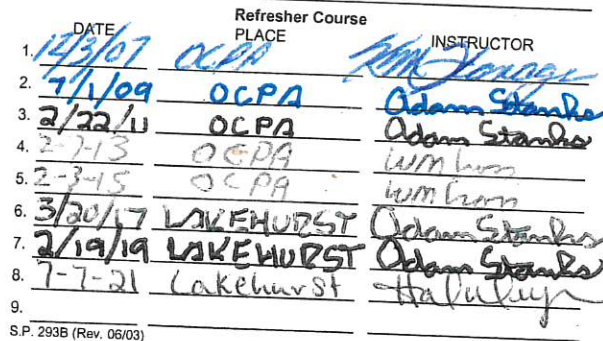 Refresher Course
DATE PLACE INSTRUCTOR
1. 12/3/07 OCPA
2. 7/1/09 OCPA Adam Stanks
3. 2/22/11 OCPA Adam Stanks
4. 2-7-13 OCPA
5. 2-3-15 OCPA
6. 3/20/17 LAKEHURST Adam Stanks
7. 2/19/19 LAKEHURST Adam Stanks
8. 7-7-21 Lakehurst
9.
S.P. 293B (Rev. 06/03)